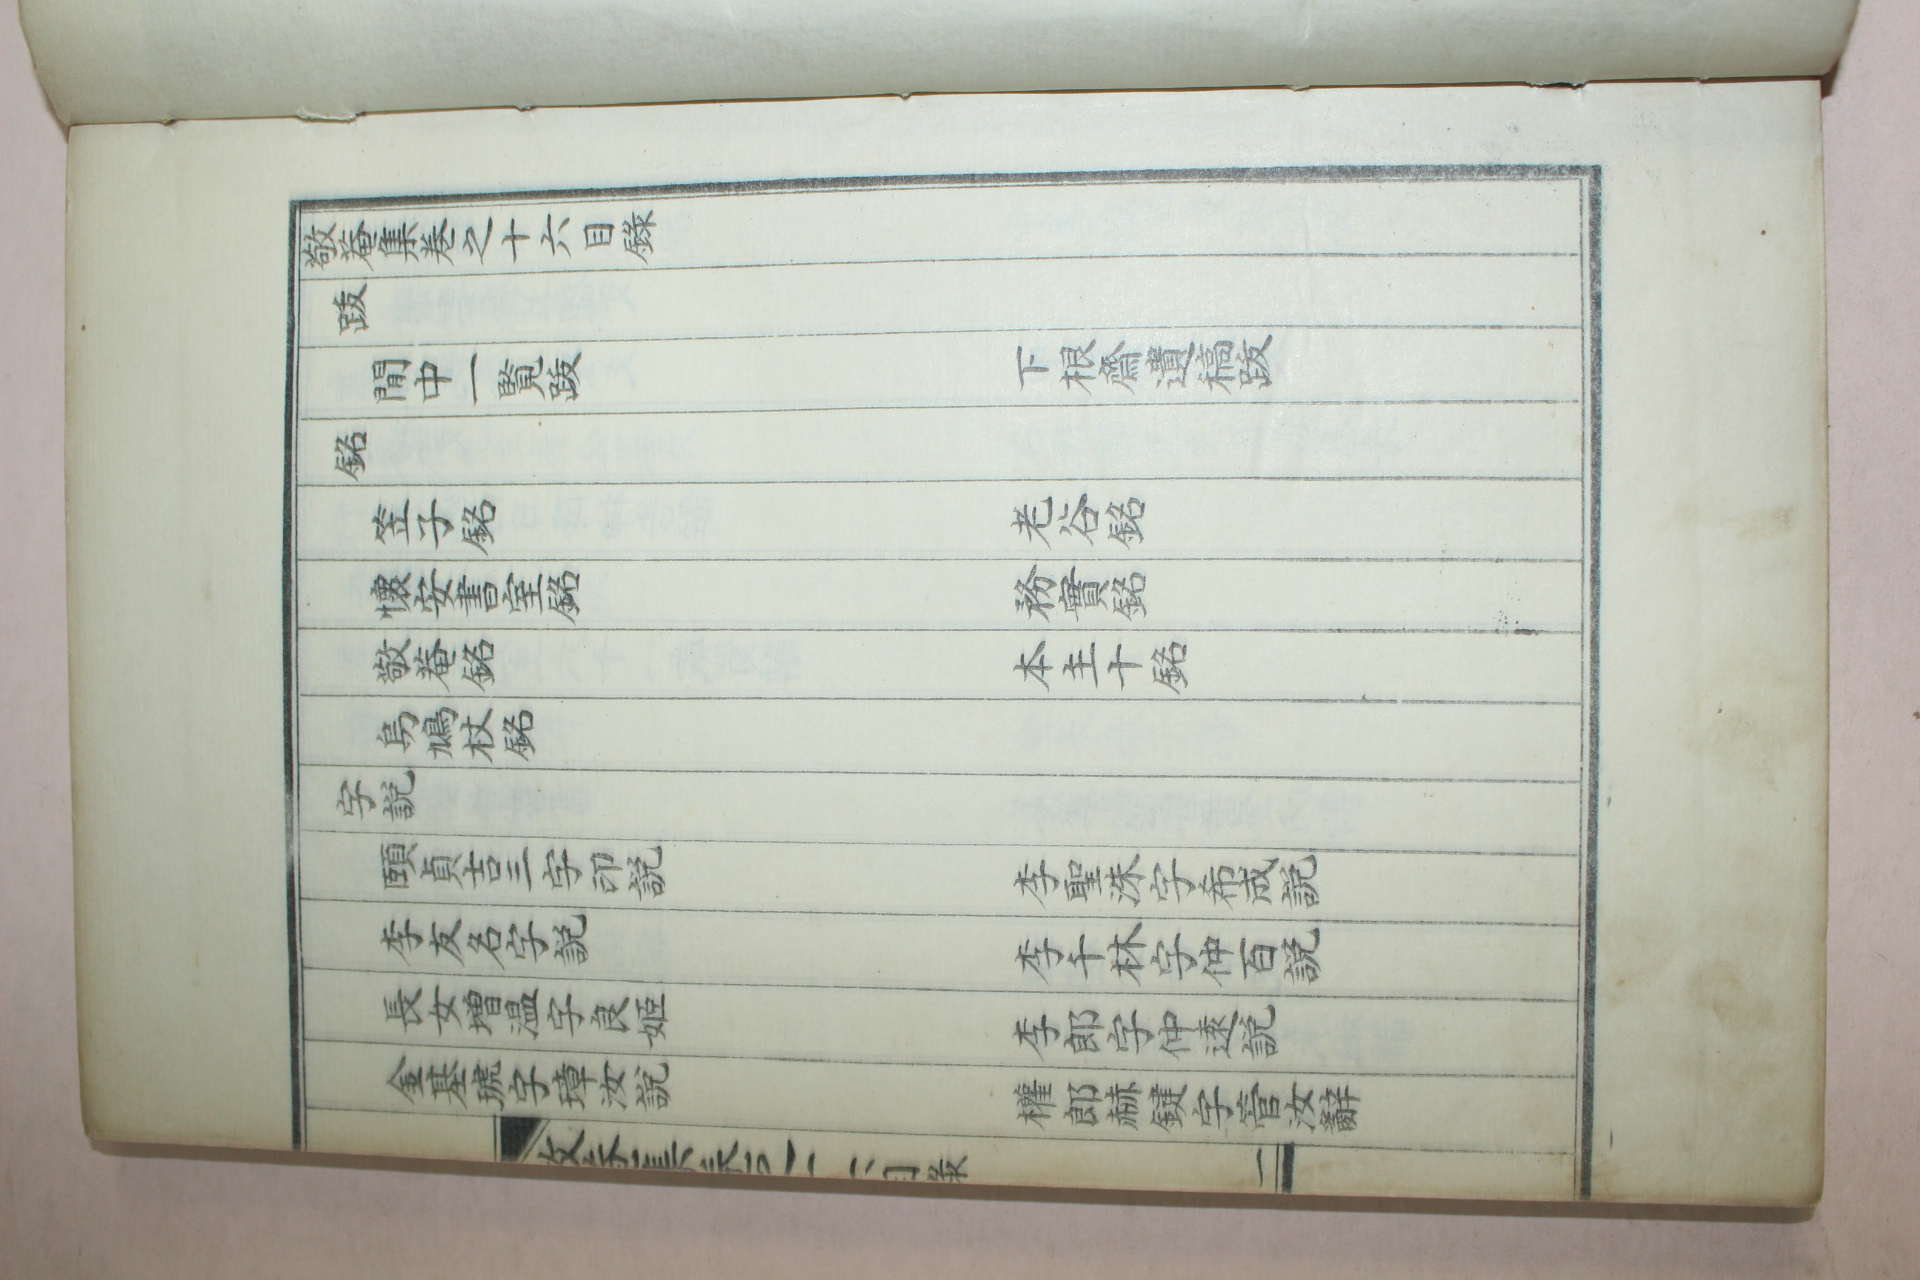 敬菴集卷之十六目錄
跋
閒中一覧跋　下根齋遺稿跋
銘
笠子銘　老谷銘
懷安書室銘　務實銘
敬菴銘　本主十銘
烏鳩杖銘
字説
頤貞吉三字印説　李聖洙字希成説
李友名字説　李千林字仲百説
長女增温字良姬　李郎字仲遠説
金基琥字璋汝説　權郎赫鍵字管汝辭
敬菴集卷之十六目錄　一